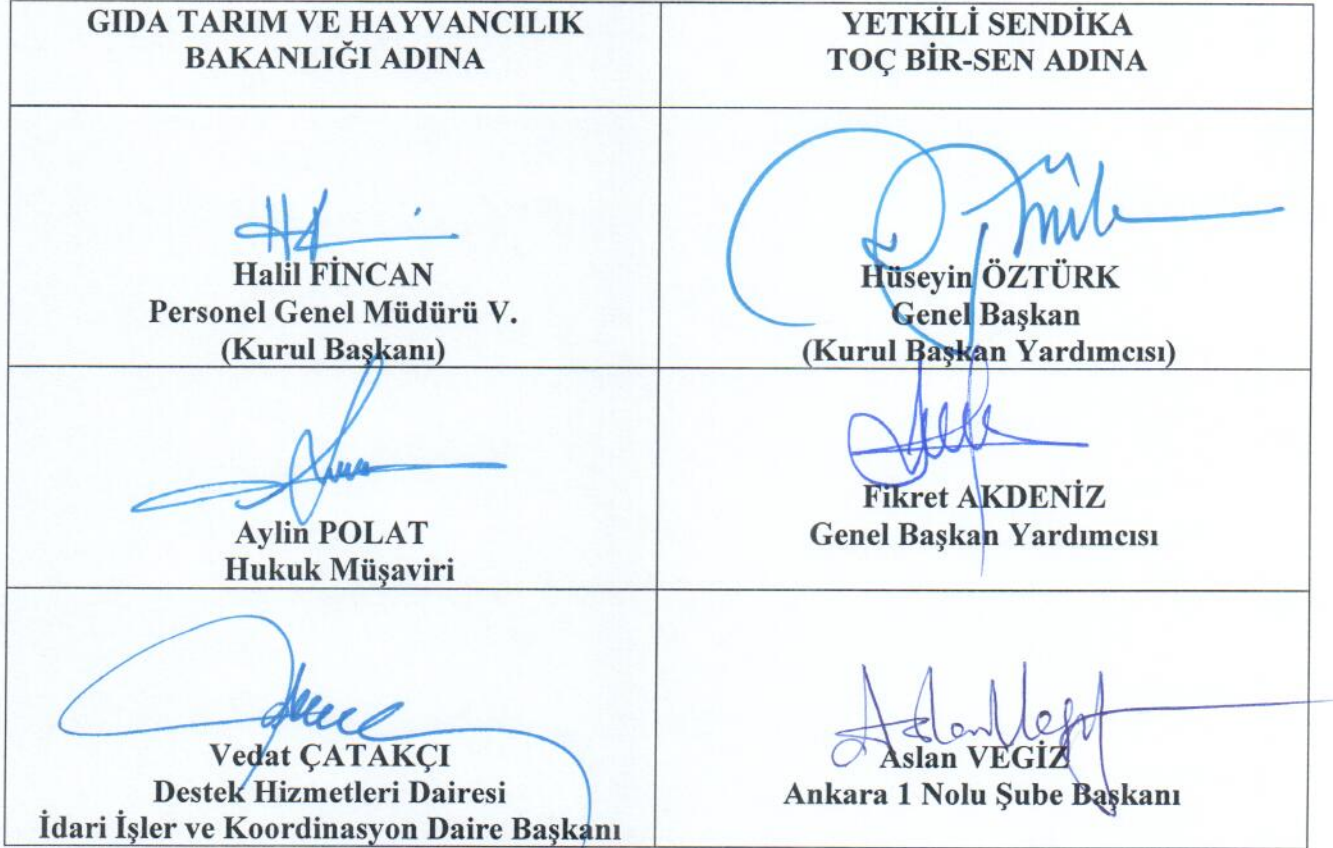 GIDA TARIM VE HAYVANCILIK
BAKANLIĞI ADINA
YETKİLİ SENDİKA
TOÇ BİR-SEN ADINA
Halil FİNCAN
Personel Genel Müdürü V.
(Kurul Başkanı)
Hüseyin ÖZTÜRK
Genel Başkan
(Kurul Başkan Yardımcısı)
Aylin POLAT
Hukuk Müşaviri
Fikret AKDENİZ
Genel Başkan Yardımcısı
Vedat ÇATAKÇI
Destek Hizmetleri Dairesi
İdari İşler ve Koordinasyon Daire Başkanı
Aslan VEGİZ
Ankara 1 Nolu Şube Başkanı